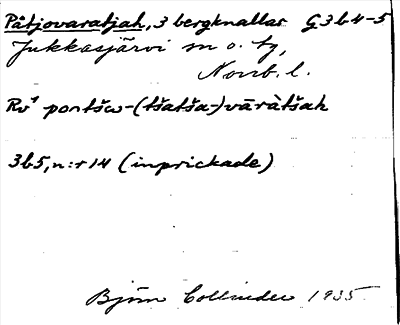 Påtjovaratjah, 3 bergknallar G3b4-5
Jukkasjärvi sn o. tg,
Norrb. l.
Rv¹ portšw-(tšatša-)vāràtšah
3b5, n:r 14 (inprickade)
Björn Collinder 1935